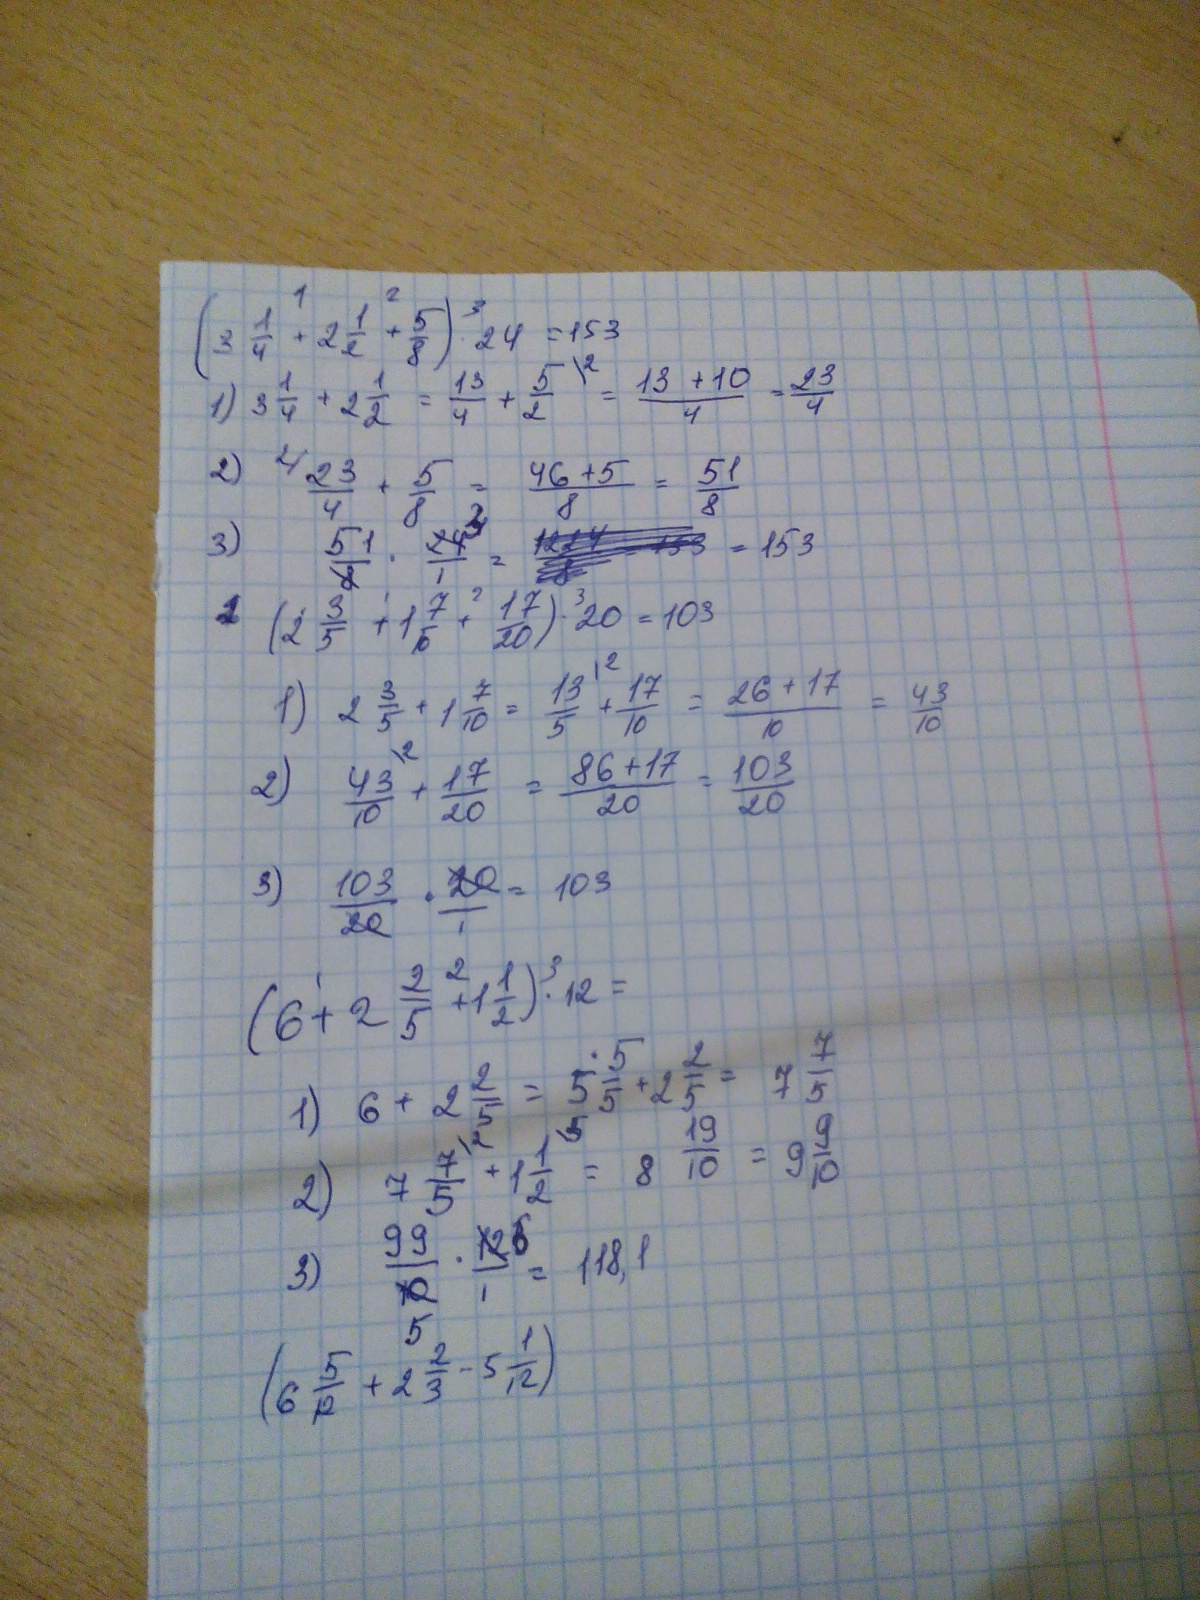 (3 1/4 +¹ 2 1/2 +² 5/8) ·³ 24 = 153
1) 3 1/4 + 2 1/2 = 13/4 + 5/2 \2 = (13 + 10)/4 = 23/4
2) 23/4 + 5/8 = (46 + 5)/8 = 51/8
3) 51/8 · 24/1 = 153
(2 3/5 +¹ 1 7/10 +² 17/20) ·³ 20 = 103
1) 2 3/5 + 1 7/10 = 13/5 \2 + 17/10 = (26 + 17)/10 = 43/10
2) 43/10 \2 + 17/20 = (86 + 17)/20 = 103/20
3) 103/20 · 20/1 = 103
(6 +¹ 2 2/5 +² 1 1/2) ·³ 12 =
1) 6 + 2 2/5 = 5 5/5 + 2 2/5 = 7 7/5
2) 7 7/5 \2 + 1 1/2 \5 = 8 19/10 = 9 9/10
3) 99/10 5 · 12/1 6 = 118,1
(6 5/12 + 2 2/3 - 5 1/12)